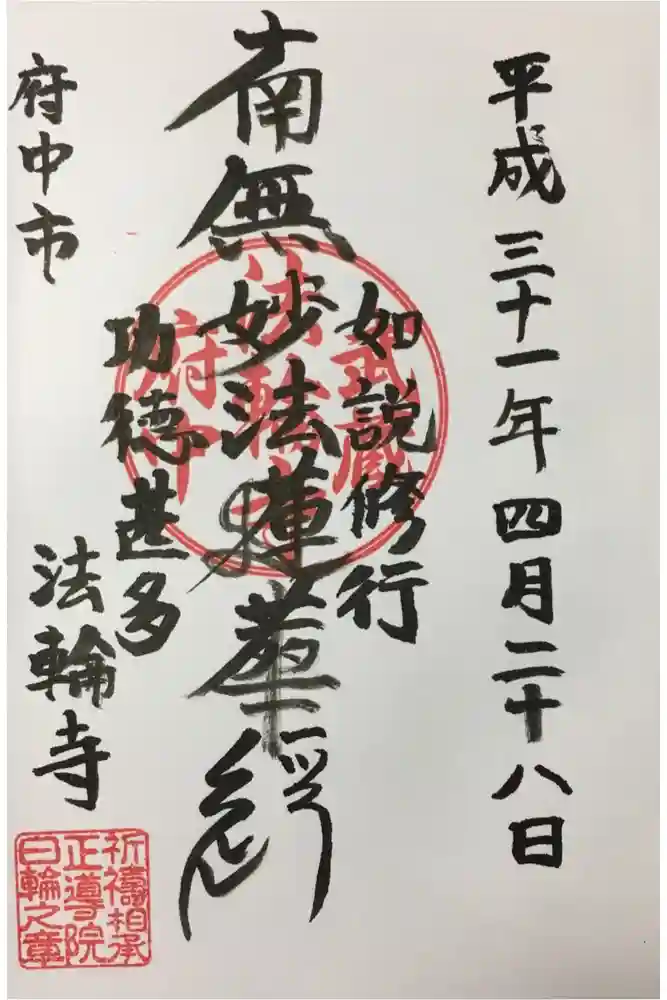 平成三十一年四月二十八日
如説修行
南無妙法蓮華経
功徳甚多
府中市
法輪寺
武蔵
法輪寺
府中
祈禱相承
正導院
日輪之章